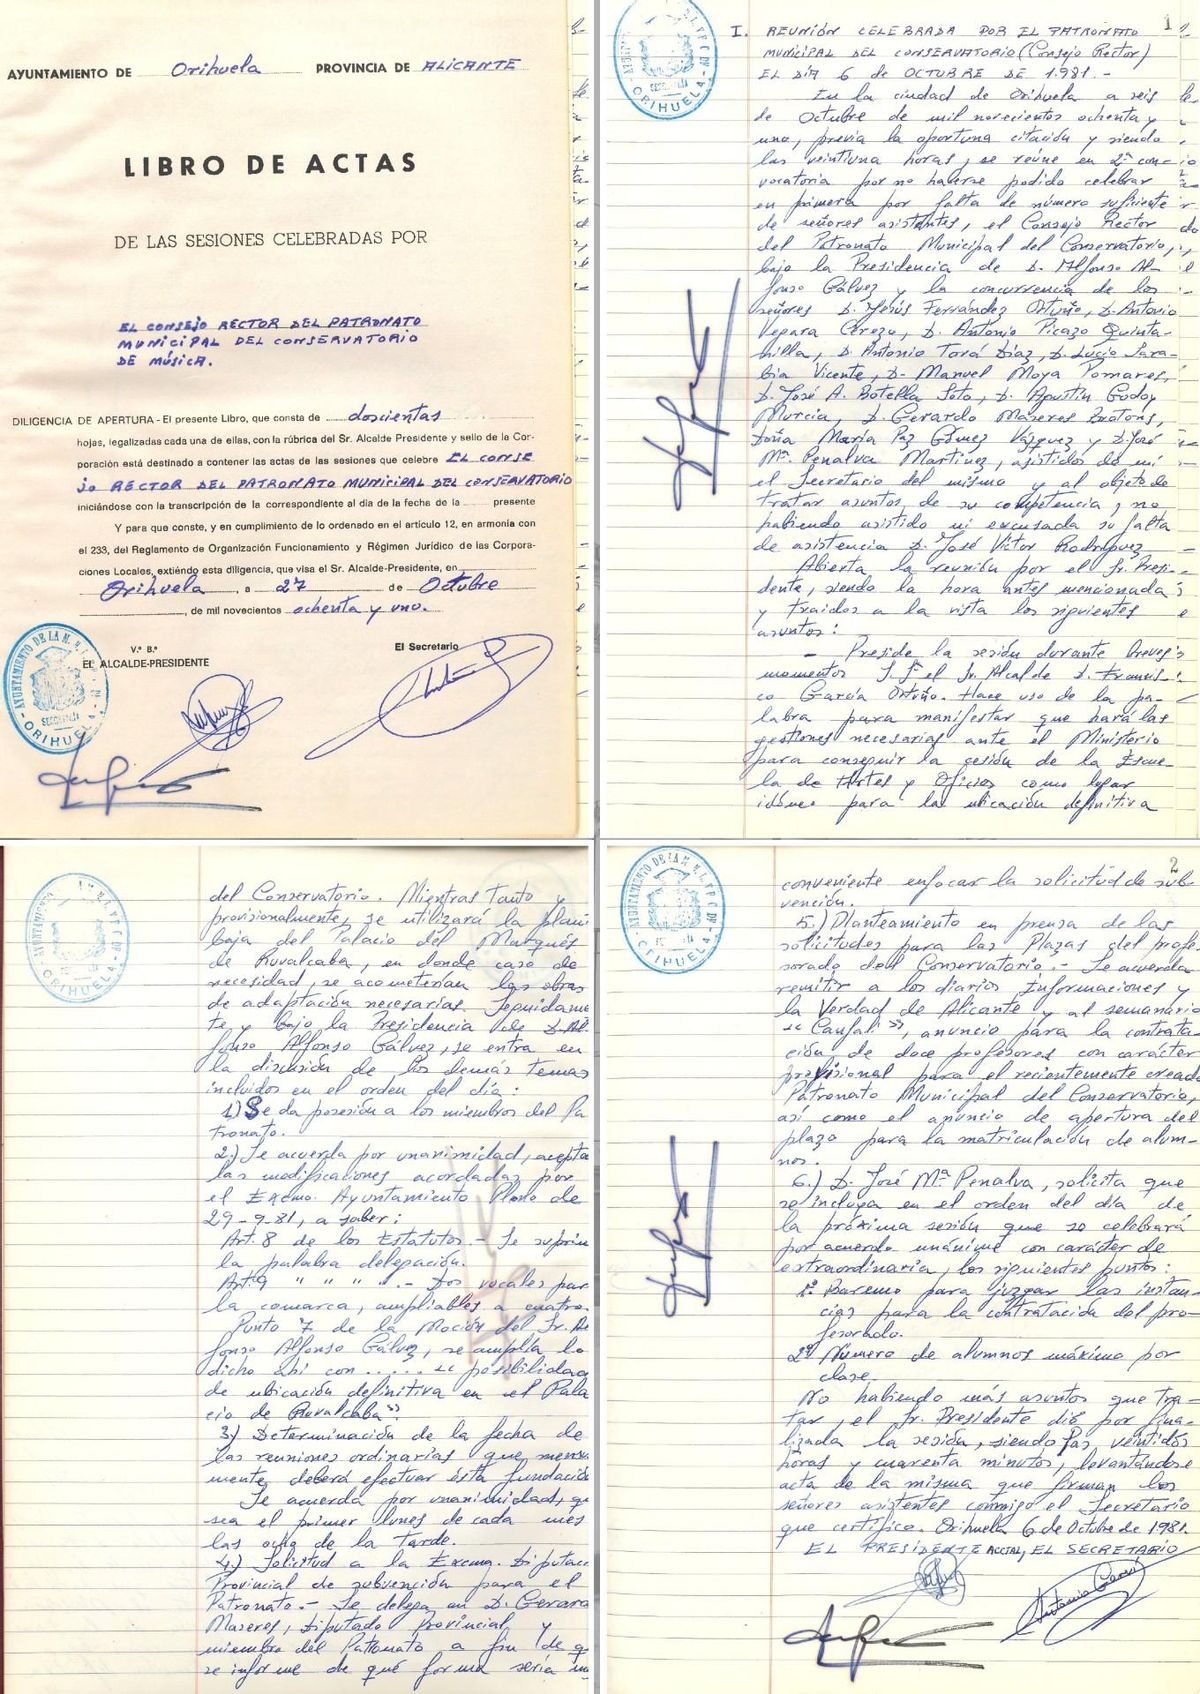 AYUNTAMIENTO DE Orihuela PROVINCIA DE ALICANTE
LIBRO DE ACTAS
DE LAS SESIONES CELEBRADAS POR
EL CONSEJO RECTOR DEL PATRONATO
MUNICIPAL DEL CONSERVATORIO
DE MÚSICA.
DILIGENCIA DE APERTURA - El presente Libro, que consta de doscientas
hojas, legalizadas cada una de ellas, con la rúbrica del Sr. Alcalde Presidente y sello de la Cor-
poración está destinado a contener las actas de las sesiones que celebre EL CONSE
JO RECTOR DEL PATRONATO MUNICIPAL DEL CONSERVATORIO
iniciándose con la transcripción de la correspondiente al día de la fecha de la presente
Y para que conste, y en cumplimiento de lo ordenado en el artículo 12, en armonía con
el 233, del Reglamento de Organización Funcionamiento y Régimen Jurídico de las Corpora-
ciones Locales, extiendo esta diligencia, que visa el Sr. Alcalde-Presidente, en
Orihuela, a 27 de Octubre
, de mil novecientos ochenta y uno.
V.º B.º
EL ALCALDE-PRESIDENTE
El Secretario
AYUNTAMIENTO DE LA
SECRETARIA
ORIHUELA
1
I. REUNIÓN CELEBRADA POR EL PATRONATO
MUNICIPAL DEL CONSERVATORIO (Consejo Rector)
EL DÍA 6 de OCTUBRE DE 1.981.-
En la ciudad de Orihuela a seis
de Octubre de mil novecientos ochenta y
uno, previa la oportuna citación y siendo
las veintiuna horas, se reúne en 2ª con-
vocatoria por no haberse podido celebrar
en primera por falta de número suficiente
de señores asistentes, el Consejo Rector
del Patronato Municipal del Conservatorio,
bajo la Presidencia de D. Alfonso Al-
fonso Gálvez y la concurrencia de los
señores D. Jesús Fernández Ortuño, D. Antonio
Vepara Cerezo, D. Antonio Picazo Quinta-
nilla, D. Antonio Tová Díaz, D. Lucio Sara-
bia Vicente, D. Manuel Moya Pomares,
D. José A. Botella Soto, D. Agustín Godoy
Murcia, D. Gerardo Maseres Brotons,
Doña María Paz Gómez Vázquez y D. José
Mª Penalva Martínez, asistidos de mi
el Secretario del mismo y al objeto de
tratar asuntos de su competencia, no
habiendo asistido ni excusada su falta
de asistencia D. José Víctor Rodríguez
Abierta la reunión por el Sr. Presi-
dente, siendo la hora antes mencionada
y traidos a la vista los siguientes
asuntos:
- Preside la sesión durante breves
momentos S.Sª el Sr. Alcalde D. Francis-
co García Ortuño. Hace uso de la pa-
labra para manifestar que hará las
gestiones necesarias ante el Ministerio
para conseguir la cesión de la Escue-
la de Artes y Oficios como lugar
idóneo para la ubicación definitiva
del Conservatorio. Mientras tanto y
provisionalmente, se utilizará la plan
baja del Palacio del Marqués
de Ruvalcaba, en donde caso de
necesidad, se acometerían las obras
de adaptación necesarias. Seguidame
te y bajo la Presidencia de D. Al
fonso Alfonso Gálvez, se entra en
la discusión de los demás temas
incluidos en el orden del día:
1) Se da posesión a los miembros del Pa
tronato.
2.) Se acuerda por unanimidad, acepta
las modificaciones acordadas por
el Excmo. Ayuntamiento Pleno de
29-9-81, a saber:
Art. 8 de los Estatutos.- Se suprim
la palabra delegación.
Art. 9 " " " ".- Dos vocales por
la comarca, ampliables a cuatro.
Punto 7 de la Moción del Sr. Al
fonso Alfonso Gálvez, se amplía lo
dicho ahí con ..... "posibilidad
de ubicación definitiva en el Pala
cio de Ruvalcaba".
3) Determinación de la fecha de
las reuniones ordinarias que mensu
mente, deberá efectuar ésta fundación
Se acuerda por unanimidad, qu
sea el primer lunes de cada mes
las ocho de la tarde.
4.) Solicitud a la Excma. Diputac
Provincial de subvención para el
Patronato.- Se delega en D. Gerar
Maseres, Diputado Provincial y
miembro del Patronato a fin de q
se informe de qué forma sería m
2
conveniente enfocar la solicitud de sub-
vención.
5.) Planteamiento en prensa de las
solicitudes para las Plazas del profe-
sorado del Conservatorio.- Se acuerda
remitir a los diarios Informaciones y
la Verdad de Alicante y al semanario
"Canfali", anuncio para la contrata-
ción de doce profesores con carácter
provisional para el recientemente creado
Patronato Municipal del Conservatorio,
así como el anuncio de apertura del
plazo para la matriculación de alum-
nos.
6.) D. José Mª Penalva, solicita que
se incluya en el orden del día de
la próxima sesión que se celebrará
por acuerdo unánime con carácter de
extraordinaria, los siguientes puntos:
1º Baremo para juzgar las instan-
cias para la contratación del pro-
fesorado.
2º Número de alumnos máximo por
clase.
No habiendo más asuntos que tra-
tar, el Sr. Presidente dió por fina-
lizada la sesión, siendo las veintidós
horas y cuarenta minutos, levantándose
acta de la misma que firman los
señores asistentes conmigo el Secretario
que certifico. Orihuela 6 de Octubre de 1981.
EL PRESIDENTE ACCTAL, EL SECRETARIO